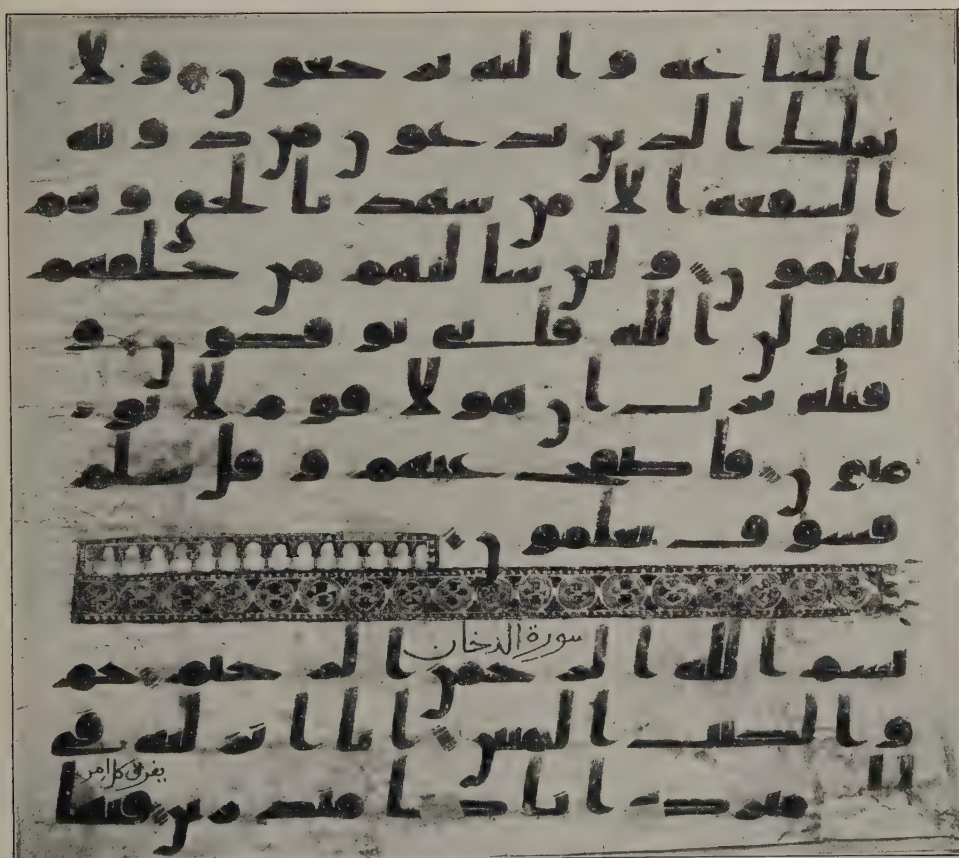 الساعه و اليه ترجعون ولا
يملك الذين يدعون من دونه
الشفعه الا من شهد بالحق وهم
يعلمون ولئن سالتهم من خلقهم
ليقولن الله فانى يوفكون و
قيله يرب ان هولا قوم لا يو
منون فاصفح عنهم و قل سلم
فسوف يعلمون
سورة الدخان
بسم الله الرحمن الرحيم حم
و الكتب المبين انا انزلنه في
مبركه انا كنا منذرين فيها
يفرق كل امر